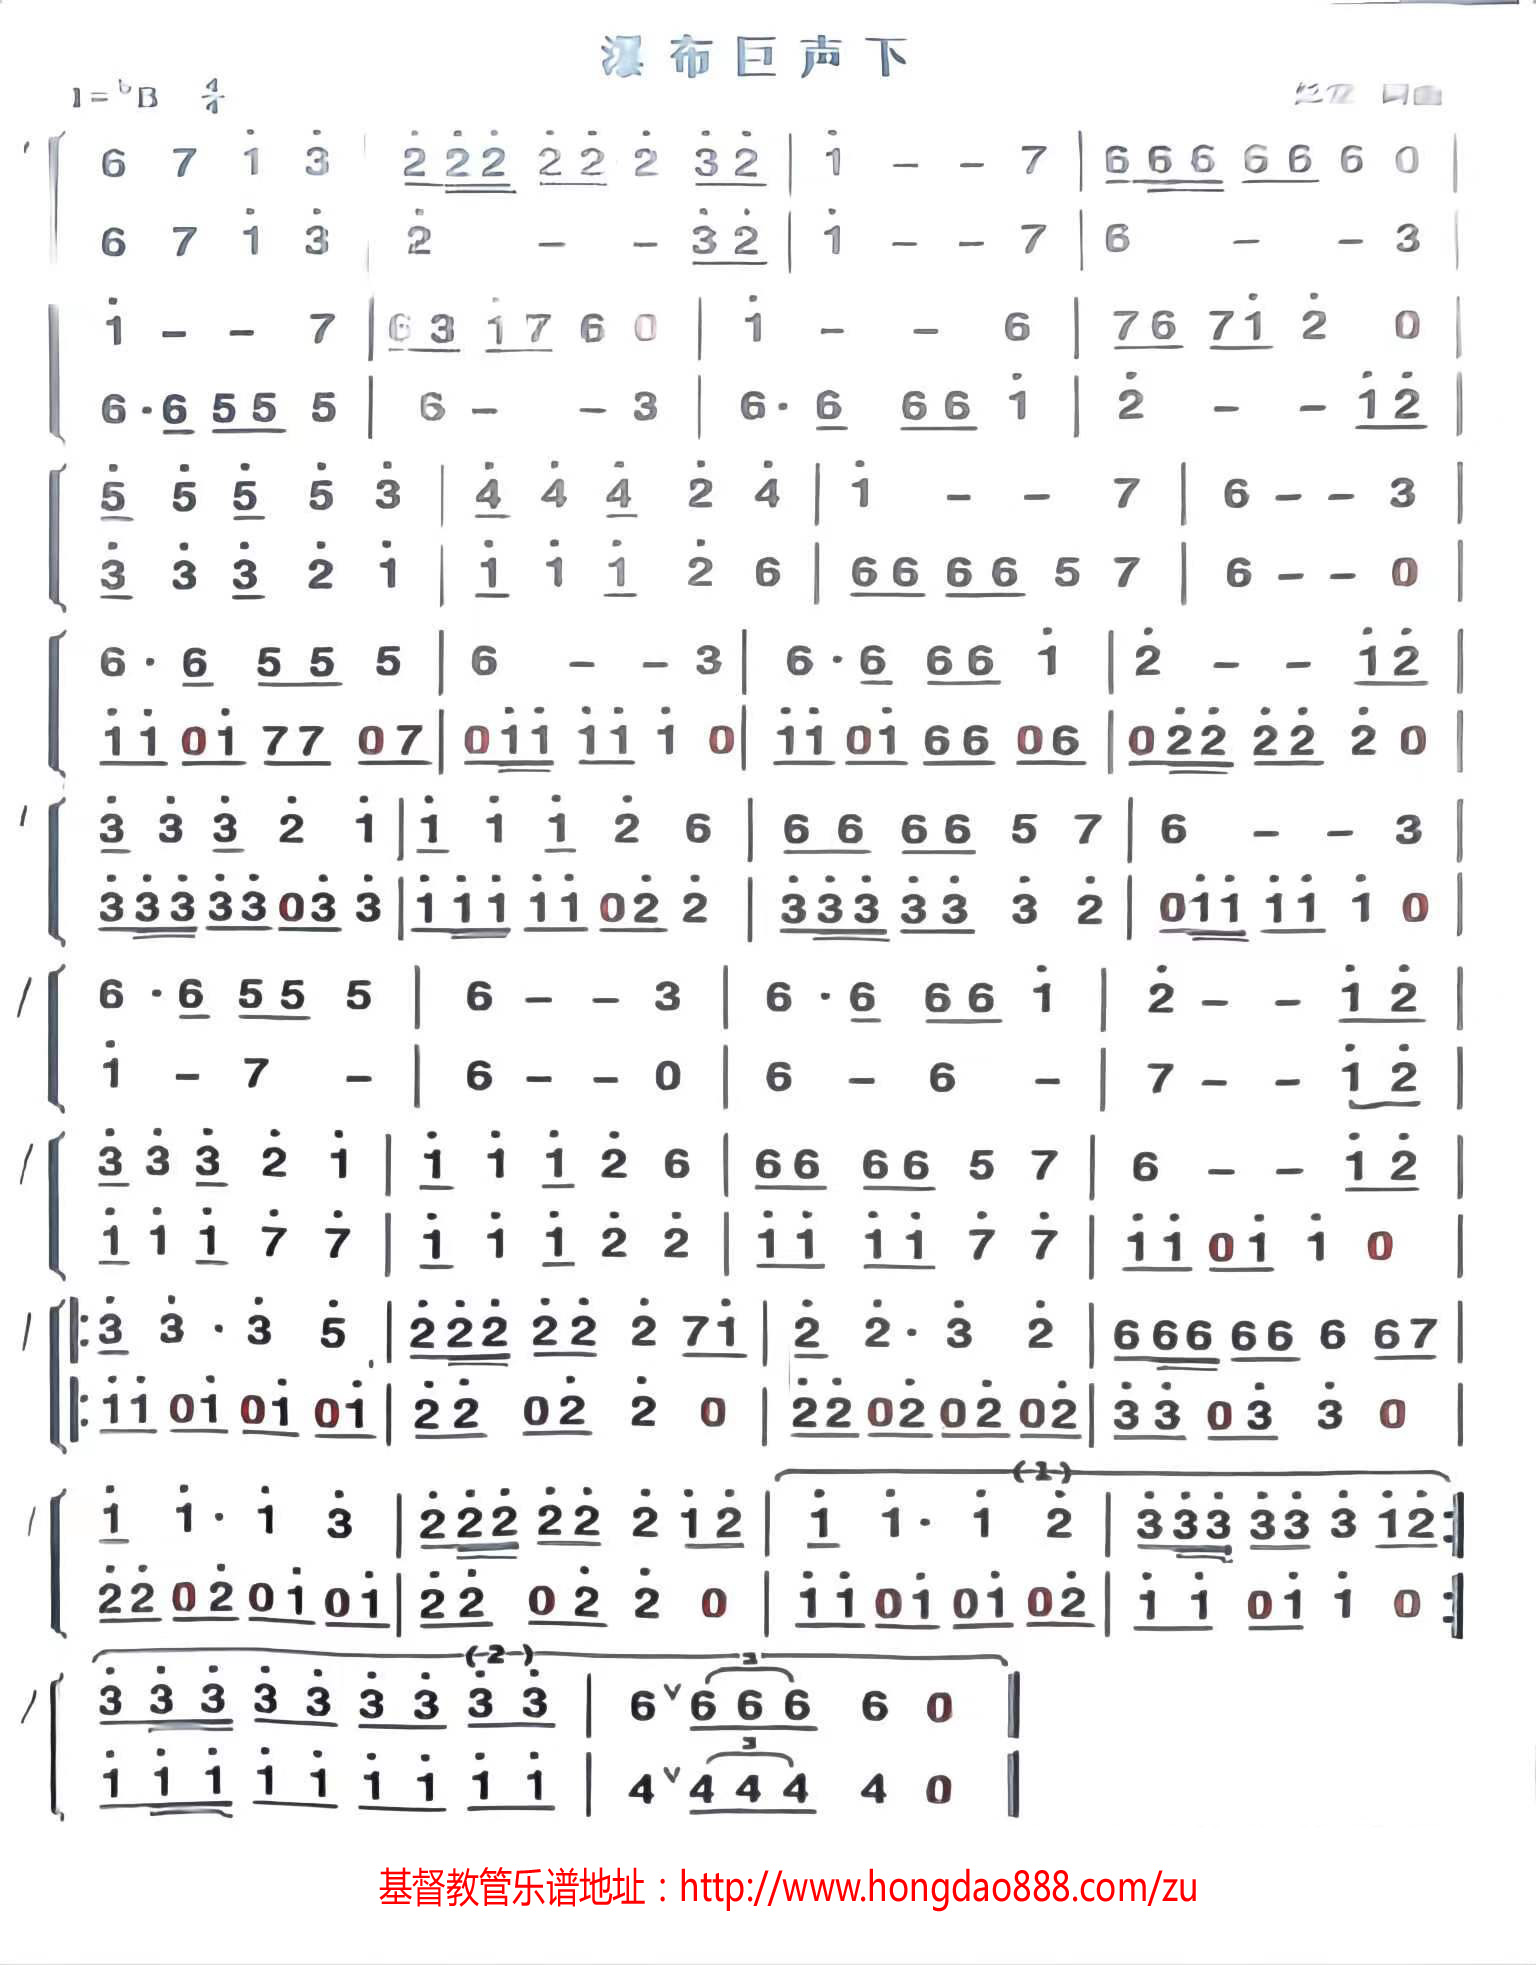 瀑布巨声下
1=ᵇB 4/4
6 7 1̇ 3̇ | 2̇ 2̇ 2̇ 2̇ 2̇ 2̇ 3̇ 2̇ | 1̇ – – 7 | 6 6 6 6 6 6 0 |
6 7 1̇ 3̇ | 2̇ – – 3̇ 2̇ | 1̇ – – 7 | 6 – – 3 |
1̇ – – 7 | 6 3 1̇ 7 6 0 | 1̇ – – 6 | 7 6 7 1̇ 2̇ 0 |
6 · 6 5 5 5 | 6 – – 3 | 6 · 6 6 6 1̇ | 2̇ – – 1̇ 2̇ |
5̇ 5̇ 5̇ 5̇ 3̇ | 4̇ 4̇ 4̇ 2̇ 4̇ | 1̇ – – 7 | 6 – – 3 |
3̇ 3̇ 3̇ 2̇ 1̇ | 1̇ 1̇ 1̇ 2̇ 6 | 6 6 6 6 5 7 | 6 – – 0 |
6 · 6 5 5 5 | 6 – – 3 | 6 · 6 6 6 1̇ | 2̇ – – 1̇ 2̇ |
1̇ 1̇ 0 1̇ 7 7 0 7 | 0 1̇ 1̇ 1̇ 1̇ 1̇ 0 | 1̇ 1̇ 0 1̇ 6 6 0 6 | 0 2̇ 2̇ 2̇ 2̇ 2̇ 0 |
3̇ 3̇ 3̇ 2̇ 1̇ | 1̇ 1̇ 1̇ 2̇ 6 | 6 6 6 6 5 7 | 6 – – 3 |
3̇ 3̇ 3̇ 3̇ 3̇ 0 3̇ 3̇ | 1̇ 1̇ 1̇ 1̇ 1̇ 0 2̇ 2̇ | 3̇ 3̇ 3̇ 3̇ 3̇ 3̇ 2̇ | 0 1̇ 1̇ 1̇ 1̇ 1̇ 0 |
6 · 6 5 5 5 | 6 – – 3 | 6 · 6 6 6 1̇ | 2̇ – – 1̇ 2̇ |
1̇ – 7 – | 6 – – 0 | 6 – 6 – | 7 – – 1̇ 2̇ |
3̇ 3̇ 3̇ 2̇ 1̇ | 1̇ 1̇ 1̇ 2̇ 6 | 6 6 6 6 5 7 | 6 – – 1̇ 2̇ |
1̇ 1̇ 1̇ 7̇ 7̇ | 1̇ 1̇ 1̇ 2̇ 2̇ | 1̇ 1̇ 1̇ 1̇ 7̇ 7̇ | 1̇ 1̇ 0 1̇ 1̇ 0 |
‖: 3̇ 3̇ · 3̇ 5̇ | 2̇ 2̇ 2̇ 2̇ 2̇ 2̇ 7 1̇ | 2̇ 2̇ · 3̇ 2̇ | 6 6 6 6 6 6 6 7 |
‖: 1̇ 1̇ 0 1̇ 0 1̇ 0 1̇ | 2̇ 2̇ 0 2̇ 2̇ 0 | 2̇ 2̇ 0 2̇ 0 2̇ 0 2̇ | 3̇ 3̇ 0 3̇ 3̇ 0 |
(1)
1̇ 1̇ · 1̇ 3̇ | 2̇ 2̇ 2̇ 2̇ 2̇ 2̇ 1̇ 2̇ | 1̇ 1̇ · 1̇ 2̇ | 3̇ 3̇ 3̇ 3̇ 3̇ 3̇ 1̇ 2̇ :‖
2̇ 2̇ 0 2̇ 0 1̇ 0 1̇ | 2̇ 2̇ 0 2̇ 2̇ 0 | 1̇ 1̇ 0 1̇ 0 1̇ 0 2̇ | 1̇ 1̇ 0 1̇ 1̇ 0 :‖
(2) 3
3̇ 3̇ 3̇ 3̇ 3̇ 3̇ 3̇ 3̇ 3̇ | 6 ∨ 6 6 6 6 0 ‖
3
1̇ 1̇ 1̇ 1̇ 1̇ 1̇ 1̇ 1̇ 1̇ | 4 ∨ 4 4 4 4 0 ‖
基督教管乐谱地址：http://www.hongdao888.com/zu